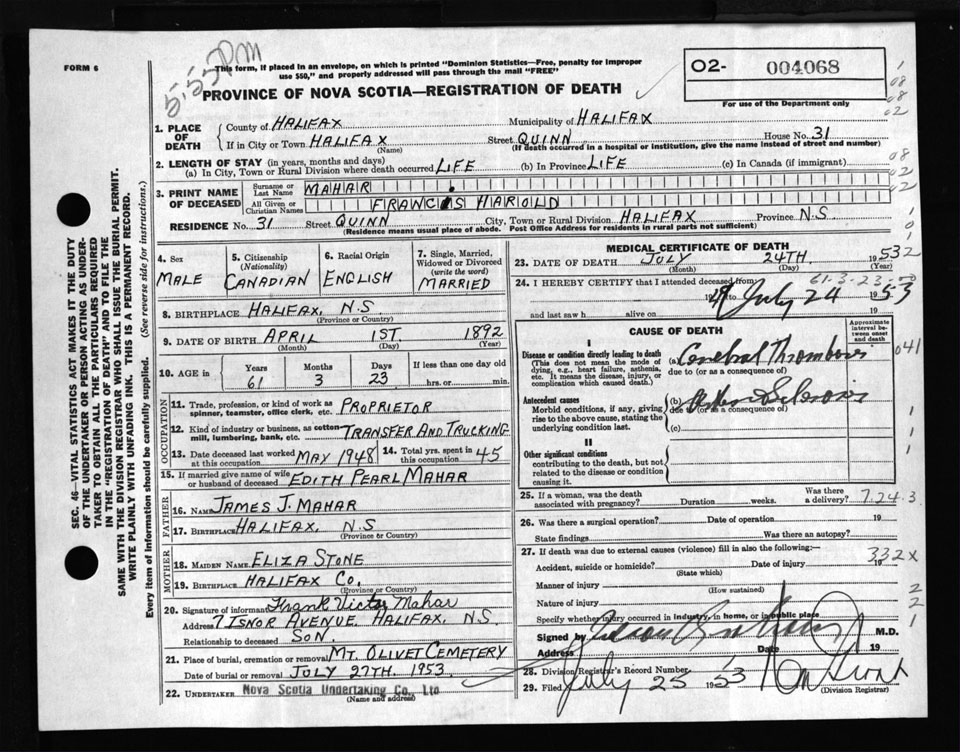 FORM 6
5:55 PM
This form, if placed in an envelope, on which is printed "Dominion Statistics—Free, penalty for improper
use $50," and properly addressed will pass through the mail "FREE"
O2- 004068
For use of the Department only
PROVINCE OF NOVA SCOTIA—REGISTRATION OF DEATH
1. PLACE OF DEATH
County of HALIFAX Municipality of HALIFAX
If in City or Town HALIFAX Street QUINN House No. 31
(Name) (If death occurred in a hospital or institution, give the name instead of street and number)
2. LENGTH OF STAY (in years, months and days)
(a) In City, Town or Rural Division where death occurred LIFE (b) In Province LIFE (c) In Canada (if immigrant)
3. PRINT NAME OF DECEASED
Surname or Last Name MAHAR
All Given or Christian Names FRANCIS HAROLD
RESIDENCE No. 31 Street QUINN City, Town or Rural Division HALIFAX Province N.S.
(Residence means usual place of abode. Post Office Address for residents in rural parts not sufficient)
4. Sex MALE
5. Citizenship (Nationality) CANADIAN
6. Racial Origin ENGLISH
7. Single, Married, Widowed or Divorced (write the word) MARRIED
8. BIRTHPLACE HALIFAX, N.S.
(Province or Country)
9. DATE OF BIRTH APRIL 1ST. 1892
(Month) (Day) (Year)
10. AGE in Years Months Days If less than one day old
61 3 23 hrs. or min.
OCCUPATION
11. Trade, profession, or kind of work as spinner, teamster, office clerk, etc. PROPRIETOR
12. Kind of industry or business, as cotton mill, lumbering, bank, etc. TRANSFER AND TRUCKING
13. Date deceased last worked at this occupation MAY 1948
14. Total yrs. spent in this occupation 45
15. If married give name of wife or husband of deceased EDITH PEARL MAHAR
FATHER
16. NAME JAMES J. MAHAR
17. BIRTHPLACE HALIFAX, N.S
(Province or Country)
MOTHER
18. MAIDEN NAME ELIZA STONE
19. BIRTHPLACE HALIFAX CO.
(Province or Country)
20. Signature of informant Frank Victor Mahar
Address 7 ISNOR AVENUE. HALIFAX, N.S.
Relationship to deceased SON.
21. Place of burial, cremation or removal MT. OLIVET CEMETERY
Date of burial or removal JULY 27TH. 1953
22. UNDERTAKER Nova Scotia Undertaking Co., Ltd
(Name and address)
MEDICAL CERTIFICATE OF DEATH
23. DATE OF DEATH JULY 24TH 1953
(Month) (Day) (Year)
61-3-23
24. I HEREBY CERTIFY that I attended deceased from
19 to July 24 1953
and last saw h alive on 19
CAUSE OF DEATH
Approximate interval between onset and death
I
Disease or condition directly leading to death
(This does not mean the mode of dying, e.g., heart failure, asthenia, etc. It means the disease, injury, or complication which caused death.)
(a) Cerebral Thrombosis
due to (or as a consequence of)
Antecedent causes
Morbid conditions, if any, giving rise to the above cause, stating the underlying condition last.
(b)
due to (or as a consequence of)
(c)
II
Other significant conditions
contributing to the death, but not related to the disease or condition causing it.
25. If a woman, was the death associated with pregnancy? Duration weeks. Was there a delivery? 7.24.3
26. Was there a surgical operation? Date of operation 19
State findings Was there an autopsy?
27. If death was due to external causes (violence) fill in also the following:—
332X
Accident, suicide or homicide? Date of injury 19
(State which)
Manner of injury
(How sustained)
Nature of injury
Specify whether injury occurred in industry, in home, or in public place
Signed by M.D.
Address Date 19
28. Division Registrar's Record Number
29. Filed July 25 1953
(Division Registrar)
SEC. 46—VITAL STATISTICS ACT MAKES IT THE DUTY
OF THE UNDERTAKER OR PERSON ACTING AS UNDER-
TAKER TO OBTAIN ALL THE PARTICULARS REQUIRED
IN THE "REGISTRATION OF DEATH" AND TO FILE THE
SAME WITH THE DIVISION REGISTRAR WHO SHALL ISSUE THE BURIAL PERMIT.
WRITE PLAINLY WITH UNFADING INK. THIS IS A PERMANENT RECORD.
Every item of information should be carefully supplied. (See reverse side for instructions.)